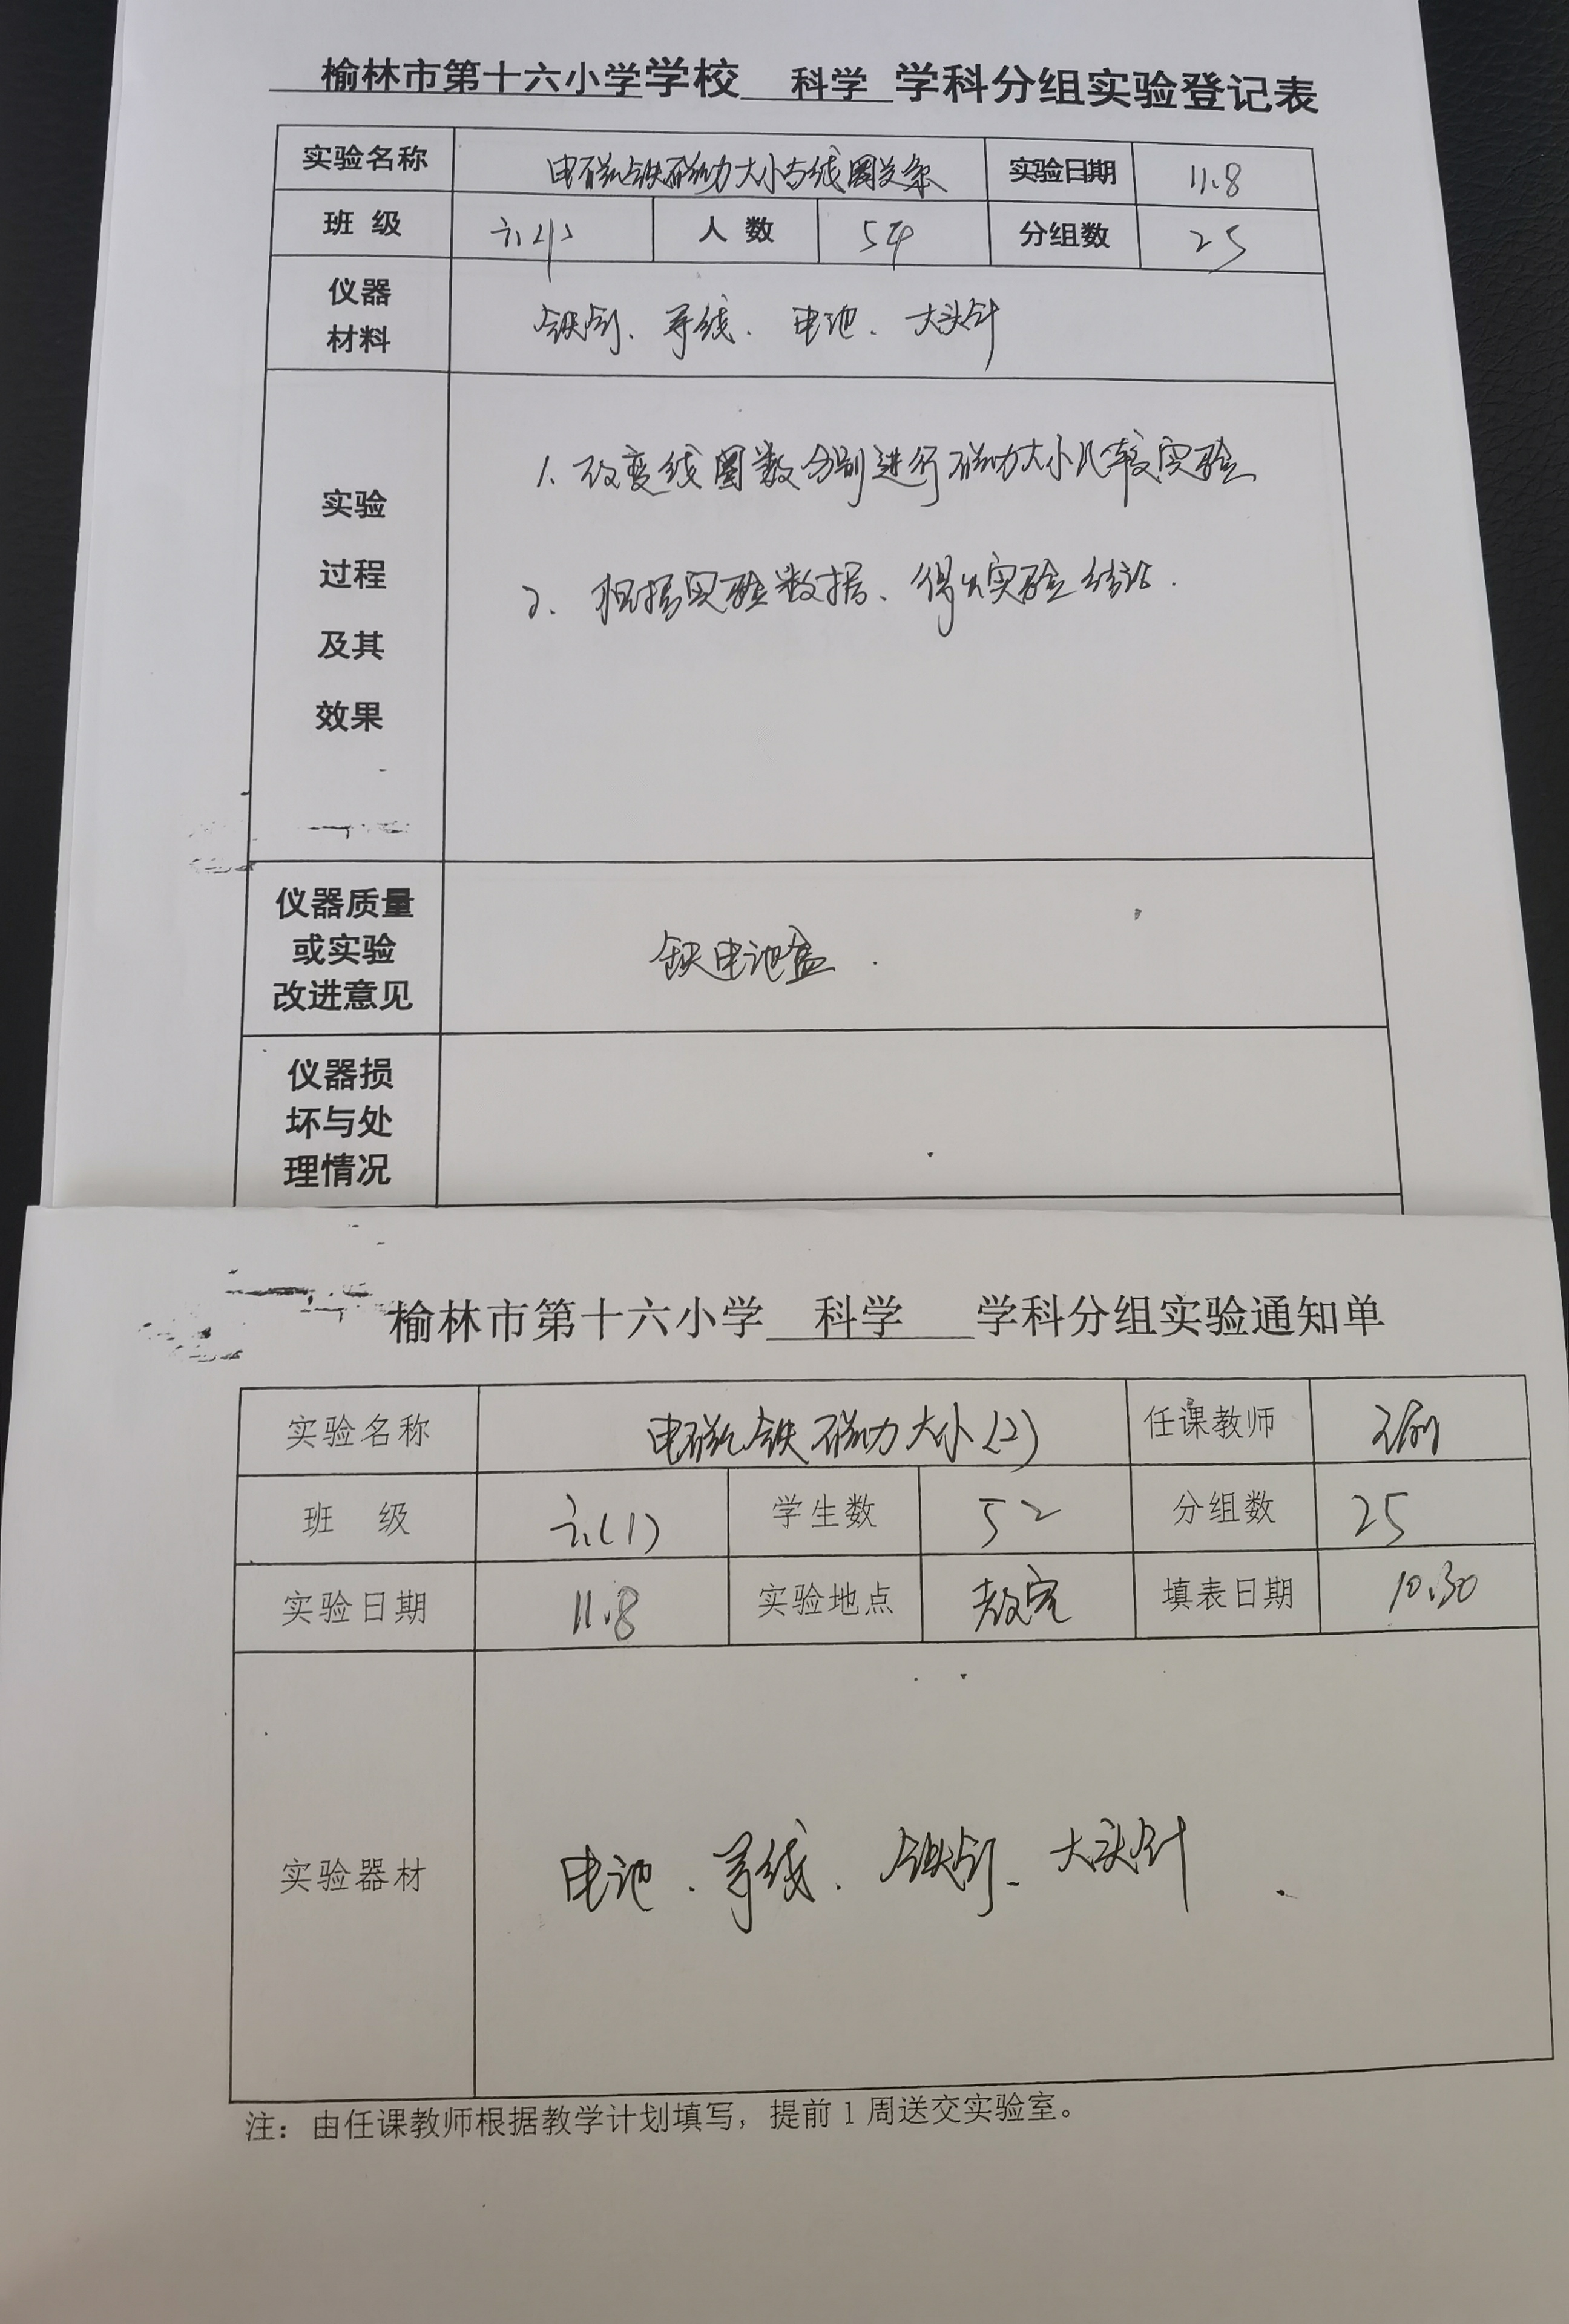 榆林市第十六小学学校 科学 学科分组实验登记表
实验名称 电磁铁磁力大小与线圈关系 实验日期 11.8
班 级 六(1) 人 数 54 分组数 25
仪器材料 铁钉、导线、电池、大头针
实验过程及其效果
1、改变线圈数分别进行磁力大小比较实验
2、根据实验数据、得出实验结论.
仪器质量或实验改进意见 缺电池盒.
仪器损坏与处理情况
榆林市第十六小学 科学 学科分组实验通知单
实验名称 电磁铁磁力大小(2) 任课教师
班 级 六(1) 学生数 52 分组数 25
实验日期 11.8 实验地点 教室 填表日期 10.30
实验器材 电池、导线、铁钉、大头针.
注：由任课教师根据教学计划填写，提前1周送交实验室。